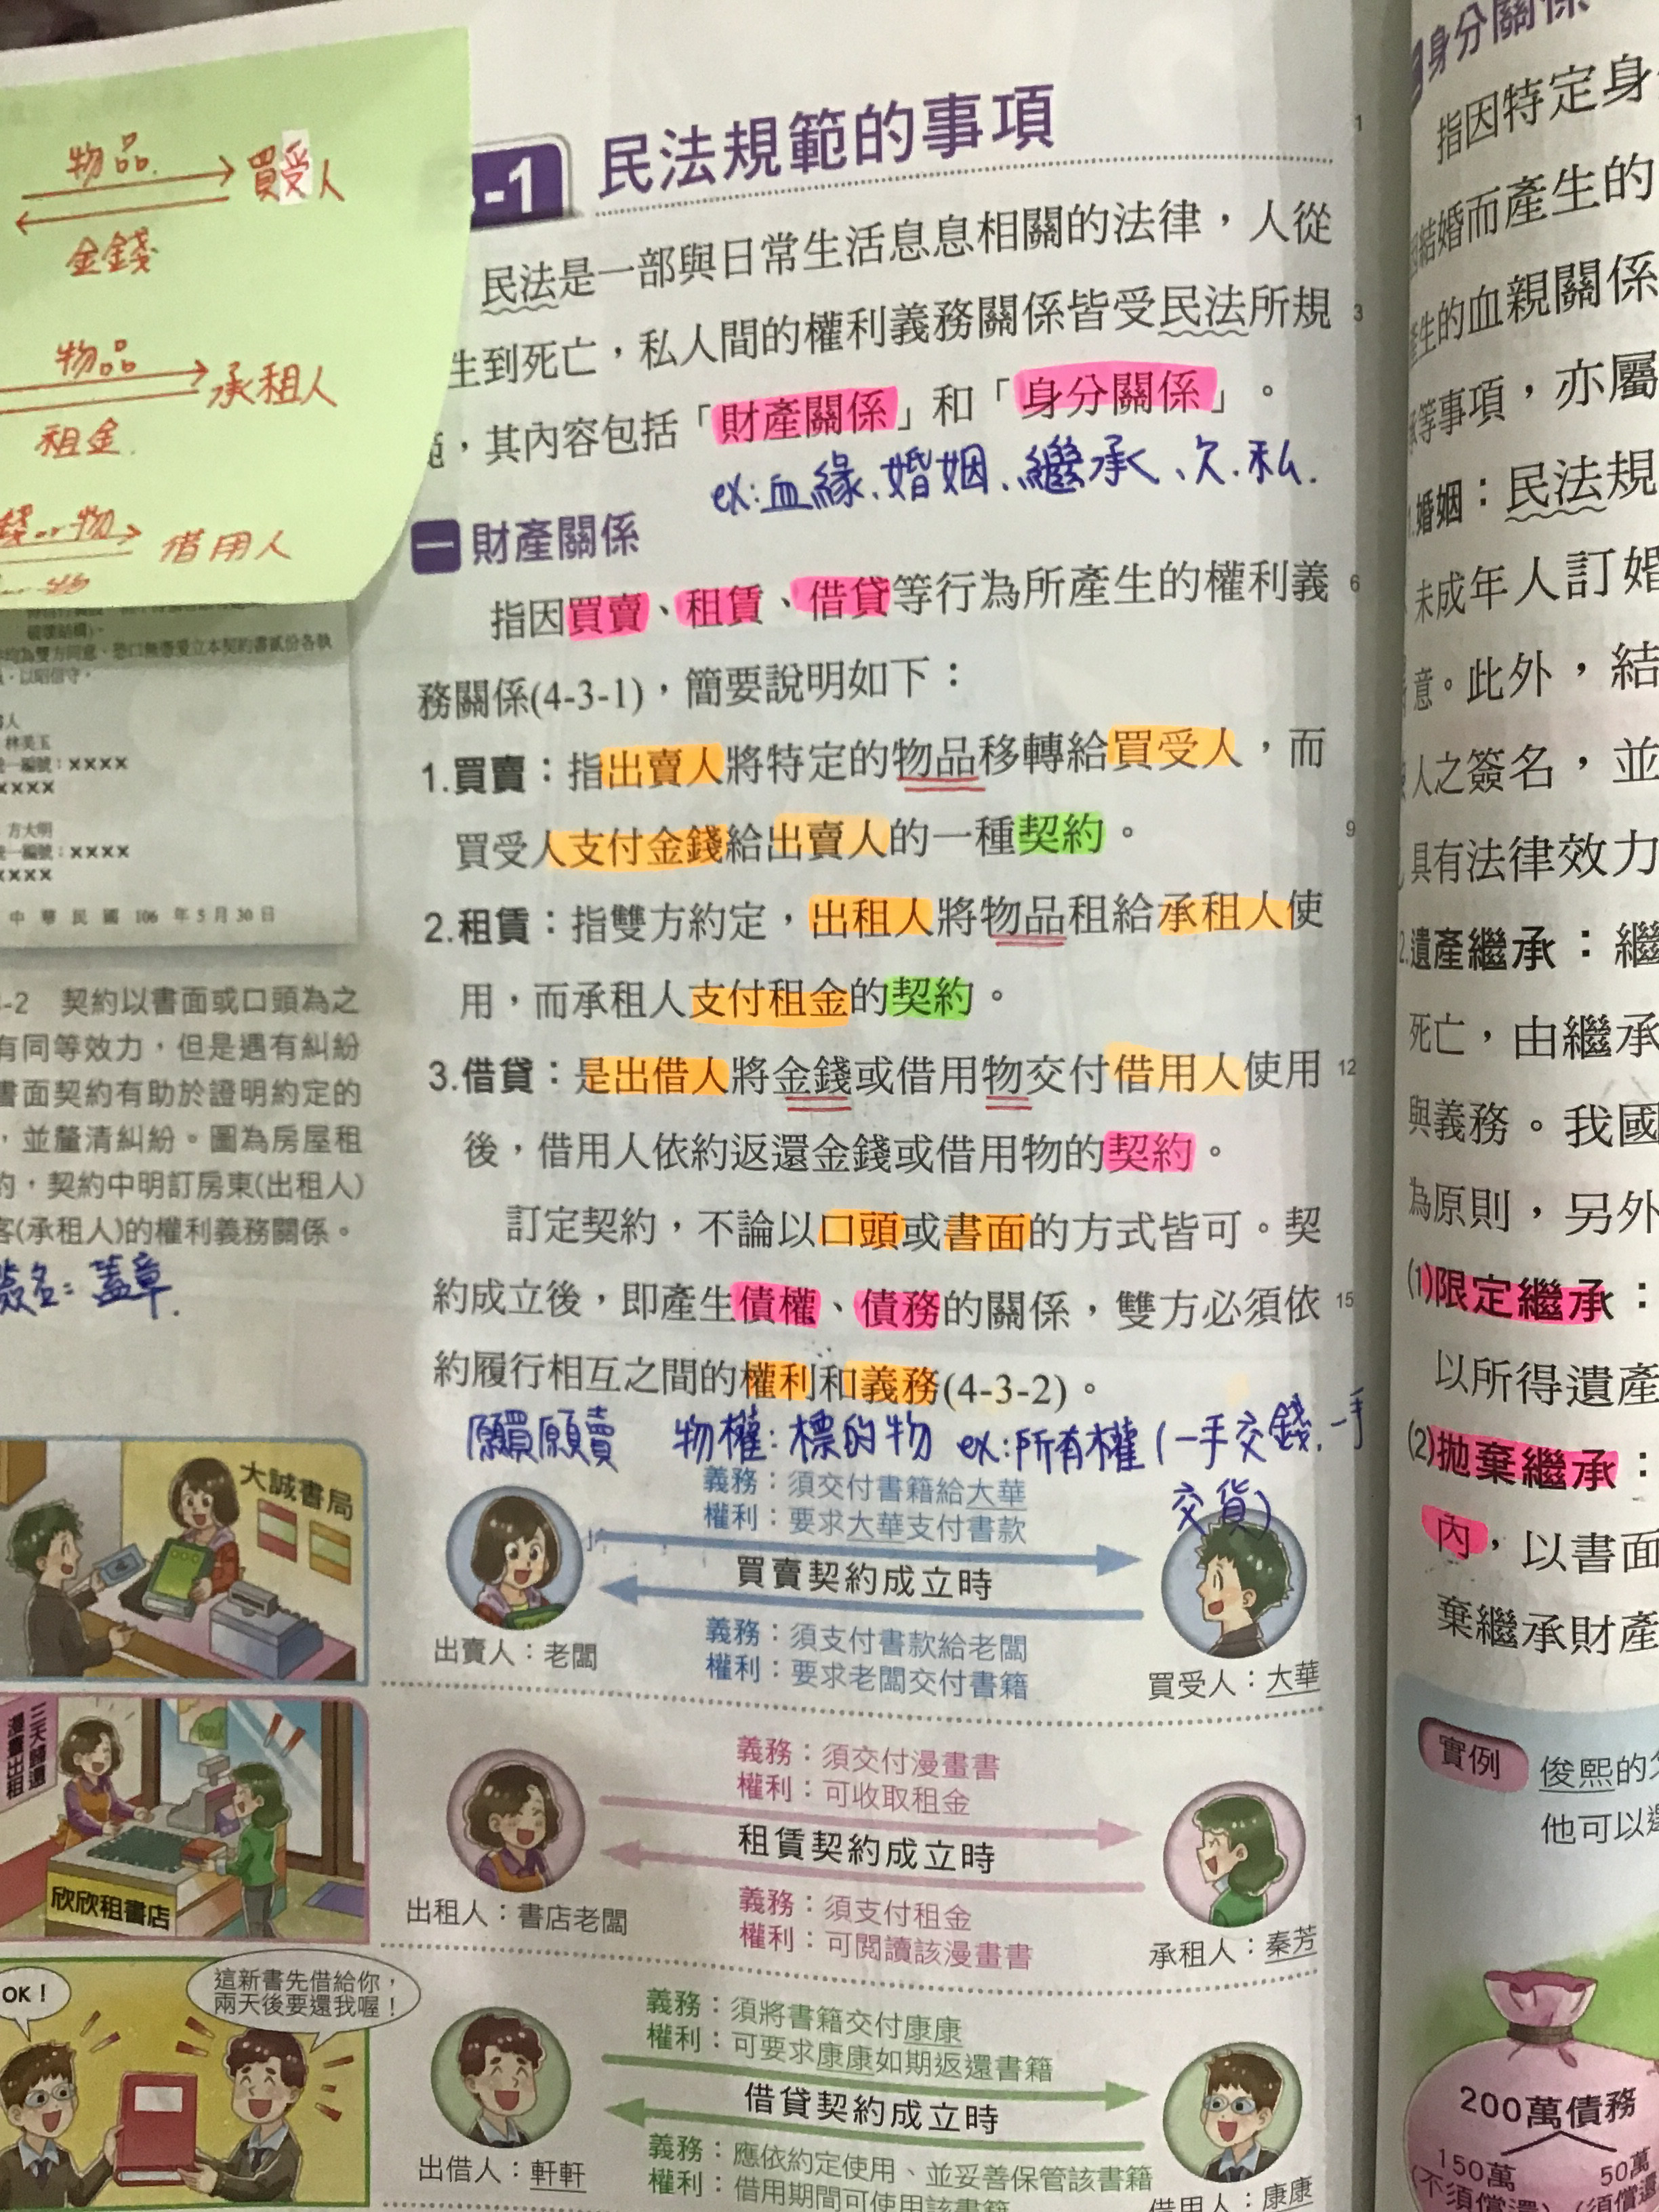 物品.
買受人
金錢
物品
承租人
租金.
錢or物
借用人
-1 民法規範的事項
民法是一部與日常生活息息相關的法律，人從
生到死亡，私人間的權利義務關係皆受民法所規
範，其內容包括「財產關係」和「身分關係」。
ex:血緣、婚姻、繼承、欠.私.
一 財產關係
指因買賣、租賃、借貸等行為所產生的權利義
務關係(4-3-1)，簡要說明如下：
1.買賣：指出賣人將特定的物品移轉給買受人，而
買受人支付金錢給出賣人的一種契約。
2.租賃：指雙方約定，出租人將物品租給承租人使
用，而承租人支付租金的契約。
3.借貸：是出借人將金錢或借用物交付借用人使用
後，借用人依約返還金錢或借用物的契約。
訂定契約，不論以口頭或書面的方式皆可。契
約成立後，即產生債權、債務的關係，雙方必須依
約履行相互之間的權利和義務(4-3-2)。
願買願賣 物權：標的物 ex:所有權(一手交錢.一手
交貨)
1
3
6
9
12
15
均為雙方同意，恐口無憑爰立本契約書貳份各執
，以昭信守。
人
林美玉
一編號：××××
××××
方大明
一編號：××××
××××
中 華 民 國 106 年 5 月 30 日
-2 契約以書面或口頭為之
有同等效力，但是遇有糾紛
書面契約有助於證明約定的
，並釐清糾紛。圖為房屋租
約，契約中明訂房東(出租人)
客(承租人)的權利義務關係。
簽名：蓋章.
大誠書局
義務：須交付書籍給大華
權利：要求大華支付書款
買賣契約成立時
義務：須支付書款給老闆
權利：要求老闆交付書籍
出賣人：老闆
買受人：大華
三天歸還
漫畫出租
Book
欣欣租書店
義務：須交付漫畫書
權利：可收取租金
租賃契約成立時
義務：須支付租金
權利：可閱讀該漫畫書
出租人：書店老闆
承租人：秦芳
OK！
這新書先借給你，
兩天後要還我喔！
義務：須將書籍交付康康
權利：可要求康康如期返還書籍
借貸契約成立時
義務：應依約定使用、並妥善保管該書籍
權利：借用期間可使用該書籍
出借人：軒軒
借用人：康康
身分關係
指因特定身
結婚而產生的
產生的血親關係
承等事項，亦屬
1.婚姻：民法規
未成年人訂婚
意。此外，結
人之簽名，並
具有法律效力
2.遺產繼承：繼
死亡，由繼承
與義務。我國
為原則，另外
(1)限定繼承：
以所得遺產
(2)拋棄繼承：
內，以書面
棄繼承財產
實例
俊熙的父
他可以選
200萬債務
150萬
(不須償還
50萬
須償還